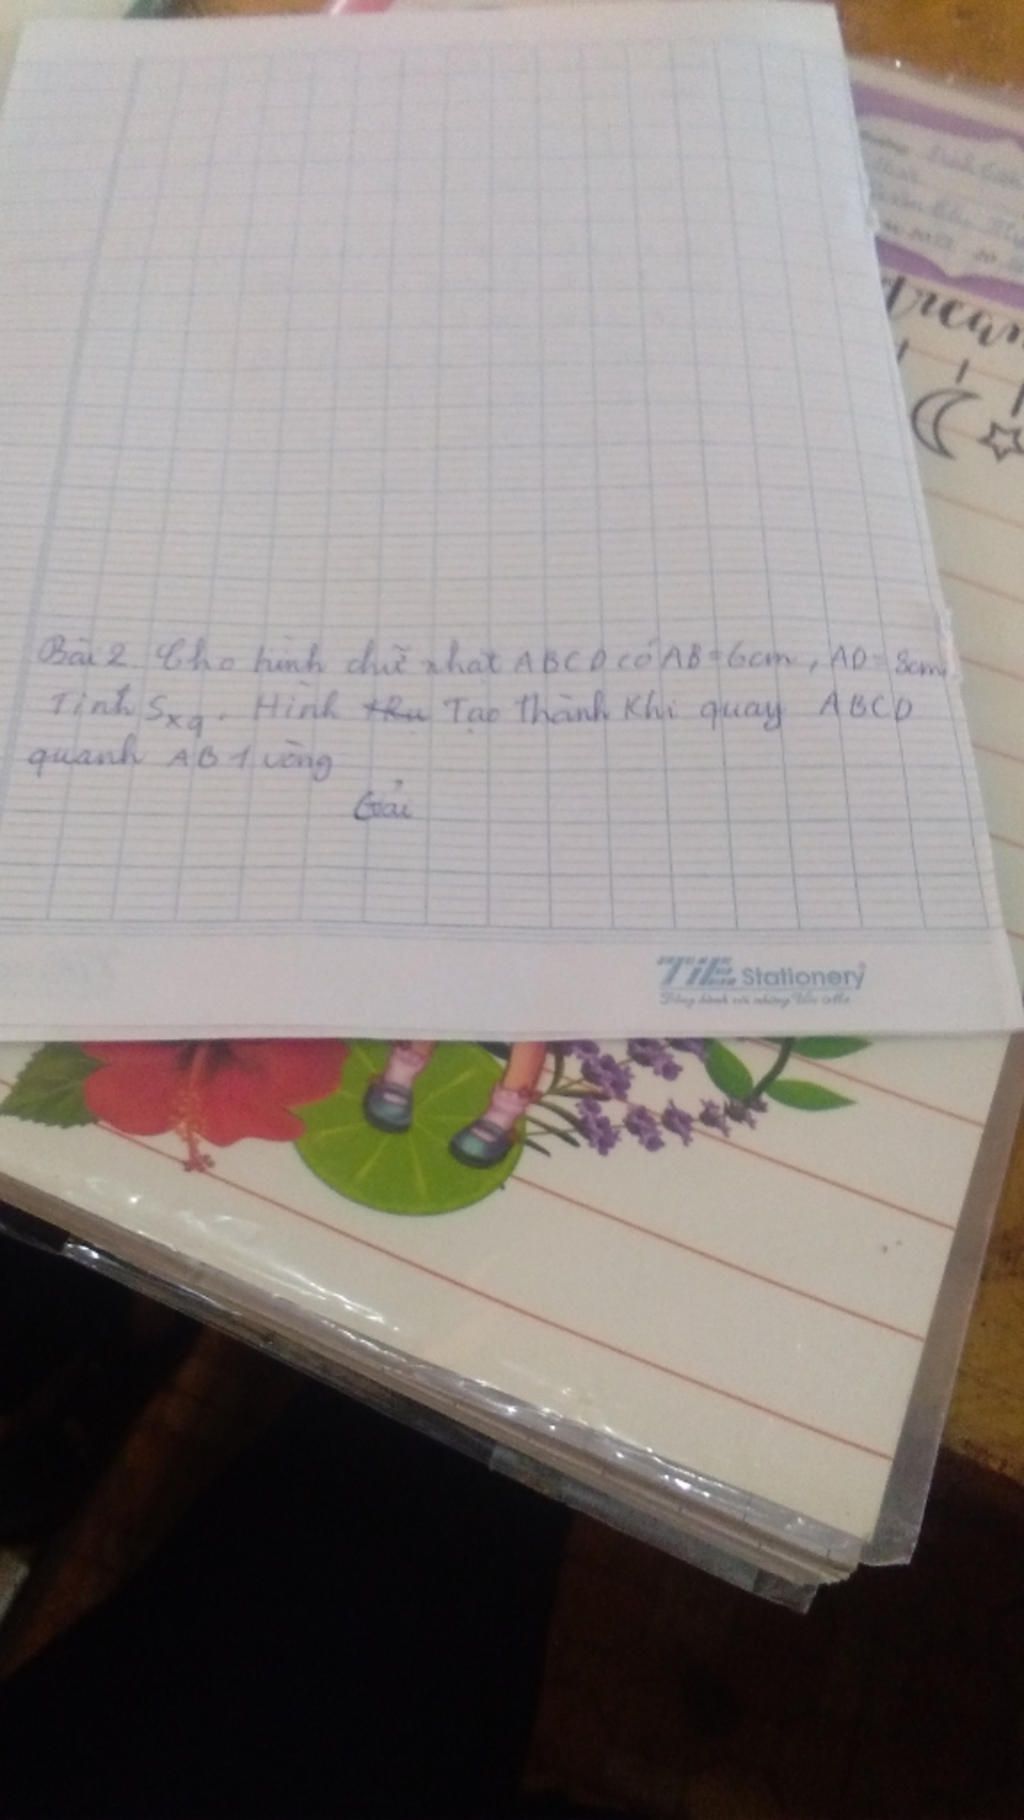 Bài 2 Cho hình chữ nhật ABCD có AB=6cm, AD=8cm.
Tính Sxq. Hình trụ Tạo thành Khi quay ABCD
quanh AB 1 vòng
Giải
TiE Stationery